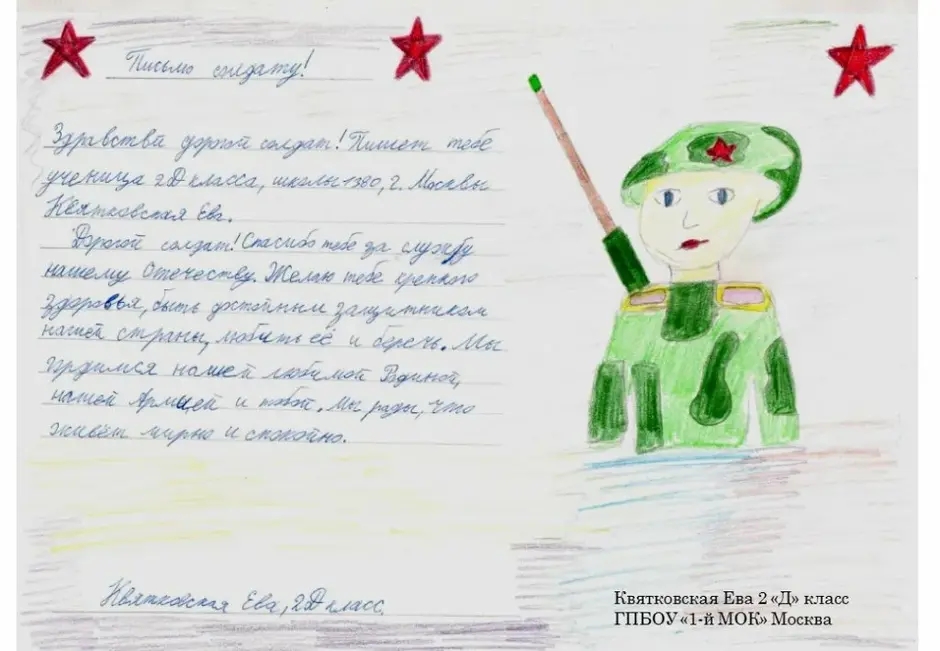 Письмо солдату!
Здравствй дорогой солдат! Пишет тебе
ученица 2Д класса, школы 1380, г. Москвы
Квятковская Ева.
Дорогой солдат! Спасибо тебе за службу
нашему Отечеству. Желаю тебе крепкого
здоровья, быть достойным защитником
нашей страны, любить её и беречь. Мы
гордимся нашей любимой Родиной,
нашей Армией и тобой. Мы рады, что
живём мирно и спокойно.
Квятковская Ева, 2Д класс.
Квятковская Ева 2 «Д» класс
ГПБОУ «1-й МОК» Москва